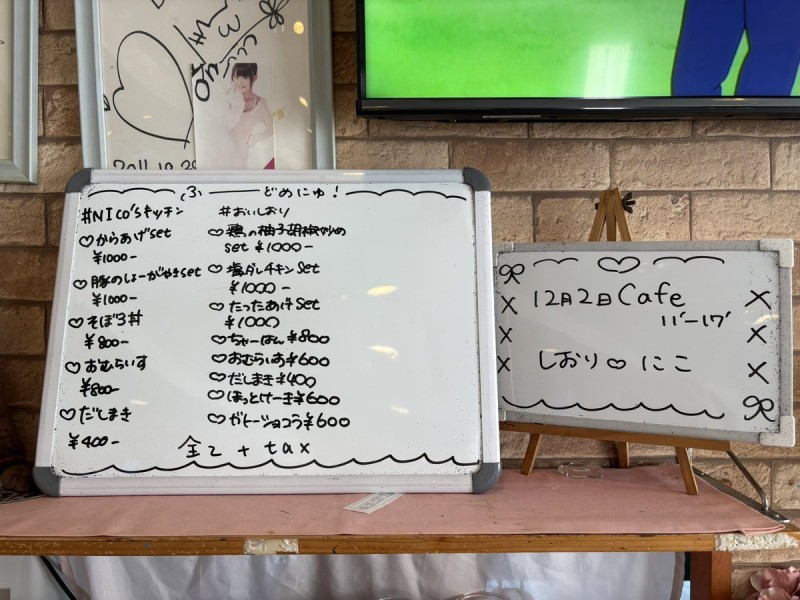 2011.10.29
ふ どめにゅ!
#NICo'sキッチン
♡からあげset
¥1000-
♡豚のしょーがやきset
¥1000-
♡そぼろ丼
¥800-
♡おむらいす
¥800-
♡だしまき
¥400-
#おいしおり
♡鶏の柚子胡椒炒め
set ¥1000-
♡塩ダレチキンset
¥1000-
♡たったあげset
¥1000
♡ちゃーはん¥800
♡おむらいす¥600
♡だしまき¥400
♡ほっとけーき¥600
♡ガトーショコラ¥600
全て + tax
12月2日Cafe
11'-17'
しおり♡にこ